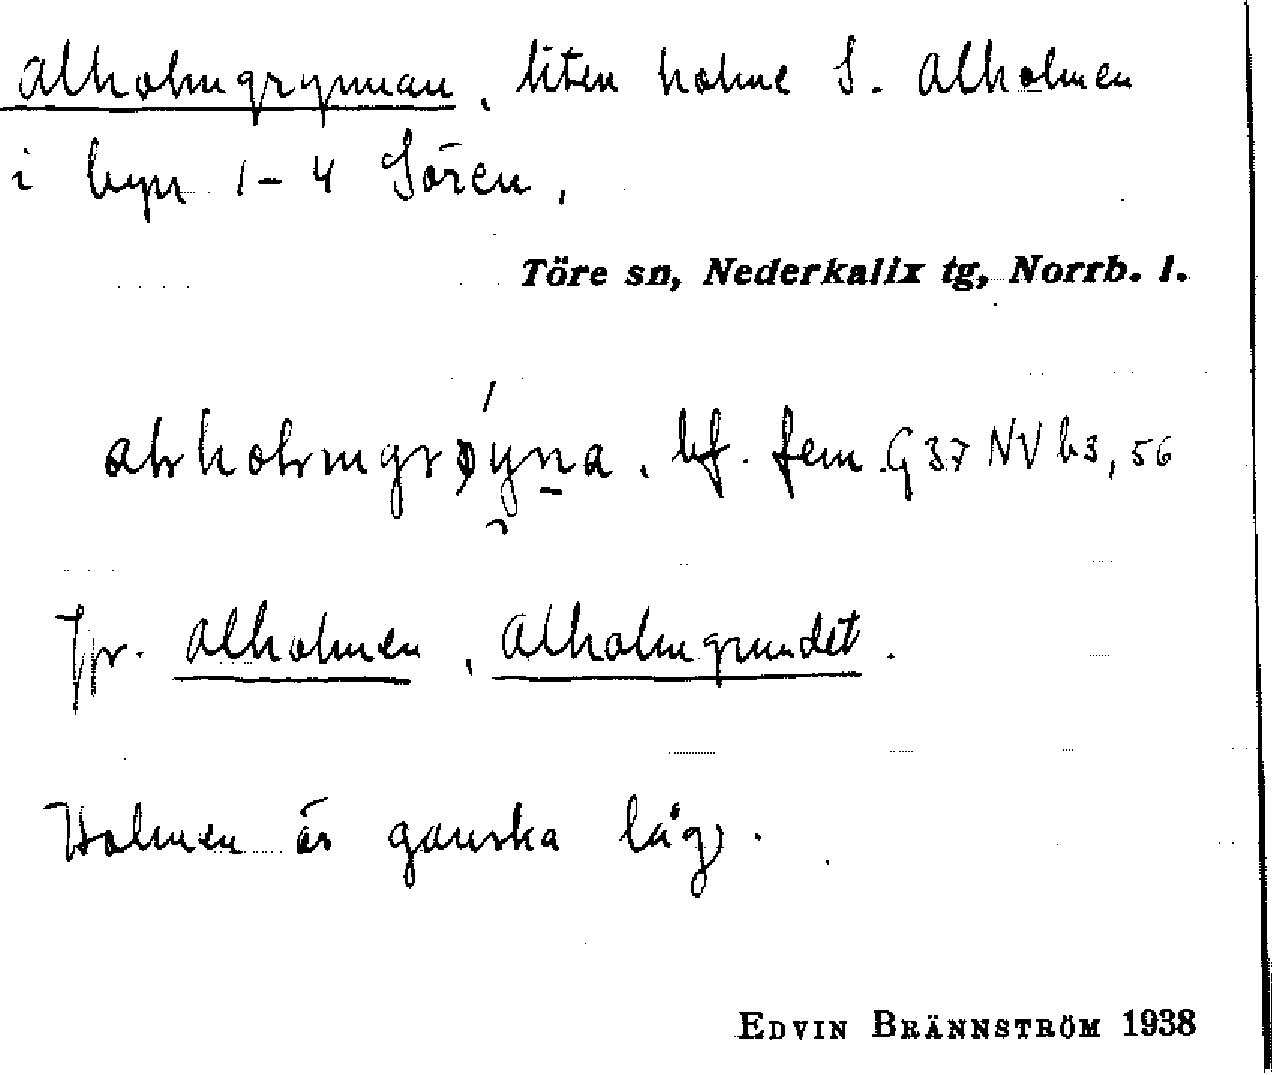 Alholmgrynnan, liten holme S. Alholmen
i byn 1-4 Sören,
Töre sn, Nederkalix tg, Norrb. l.
bf. fem. G37 NV b3, 56
Jfr. Alholmen, Alholmgrundet.
Holmen är ganska låg.
EDVIN BRÄNNSTRÖM 1938